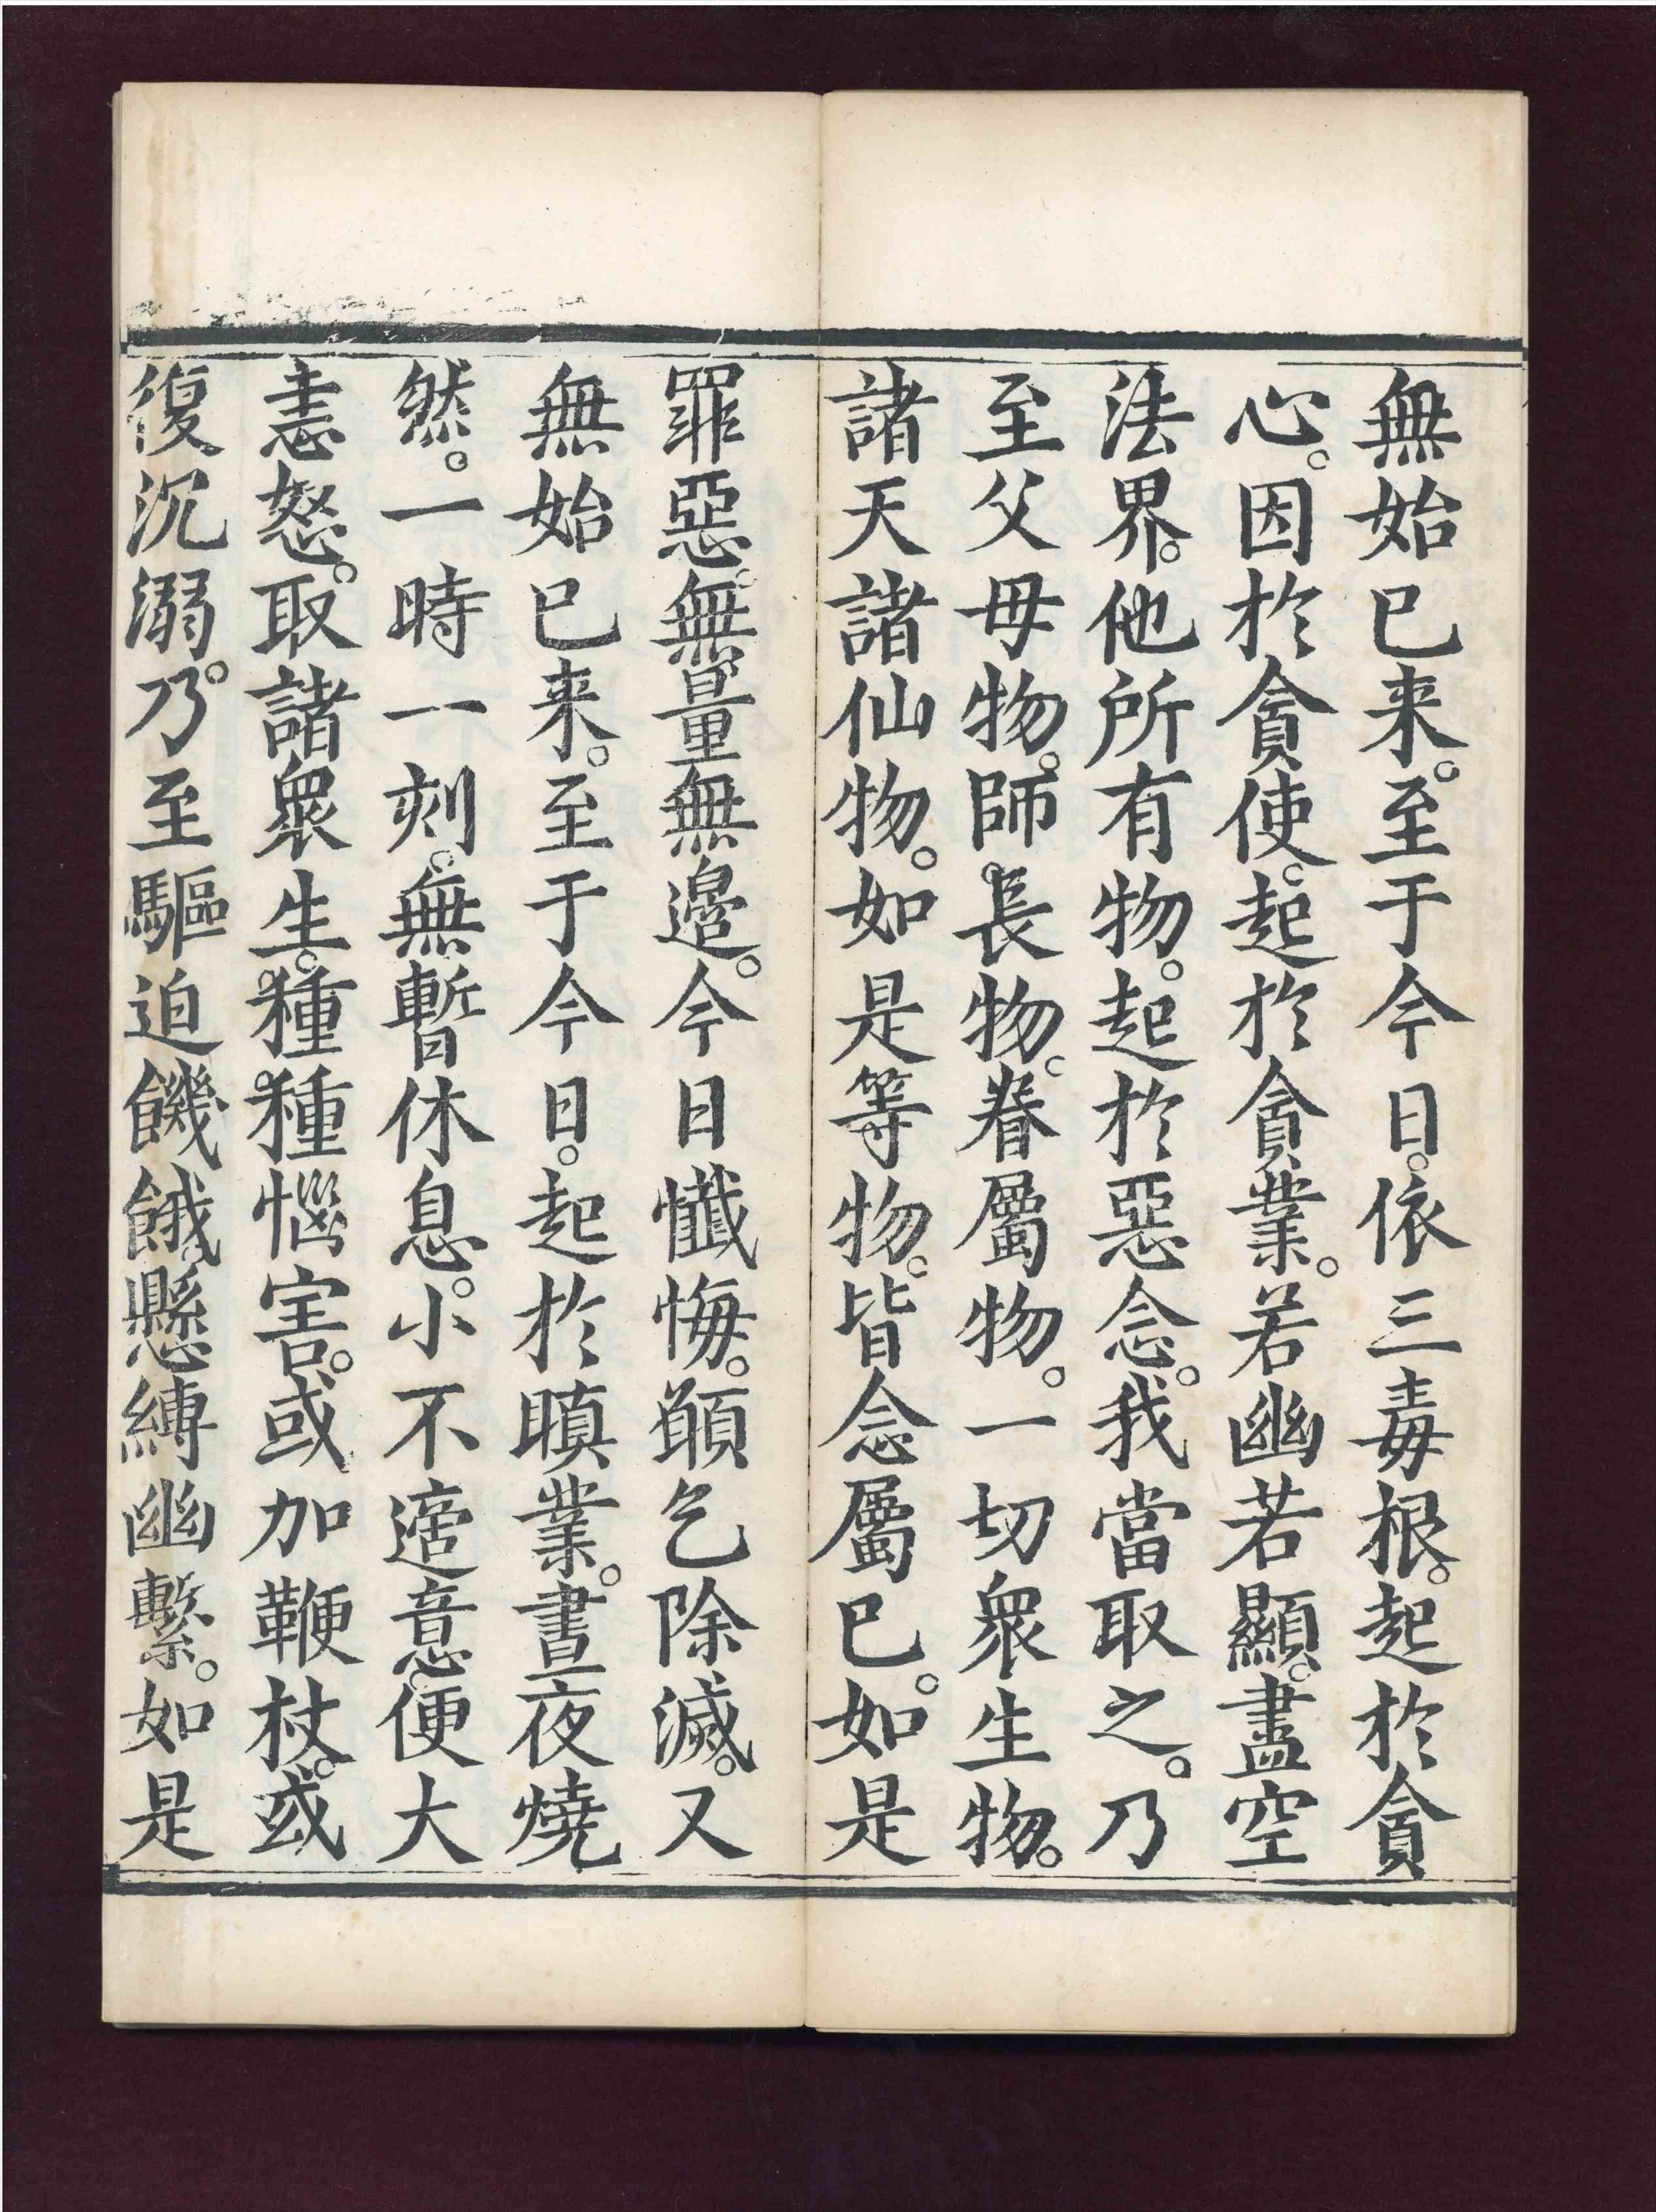 無始已来。至于今日。依三毒根。起於貪
心。因於貪使。起於貪業。若幽若顯。盡空
法界。他所有物。起於惡念。我當取之。乃
至父母物。師長物。眷屬物。一切衆生物。
諸天諸仙物。如是等物。皆念屬已。如是
罪惡。無量無邊。今日懺悔。願乞除滅。又
無始已来。至于今日。起於瞋業。晝夜燒
然。一時一刻。無暫休息。小不適意。便大
恚怒。取諸衆生。種種惱害。或加鞭杖。或
復沉溺。乃至驅迫饑餓。懸縛幽繫。如是